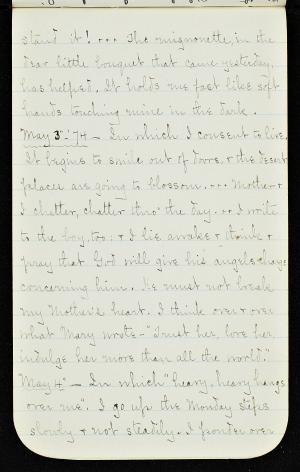 stand it! ... The mignonette, in the
dear little bouquet that came yesterday,
has helped. It holds me fast like soft
hands touching mine in the dark.
May 3rd '74 - In which I consent to live.
It begins to smile out of doors, & the desert
places are going to blossom.... Mother &
I chatter, chatter thro' the day... I write
to the boy, too. & I lie awake & think &
pray that God will give his angels charge
concerning him. He must not break
my Mother's heart. I think over & over
what Mary wrote - "Trust her, love her,
indulge her more than all the world."
May 4th - In which "heavy, heavy hangs
over me". I go up the Monday steps
slowly & not steadily. I ponder over